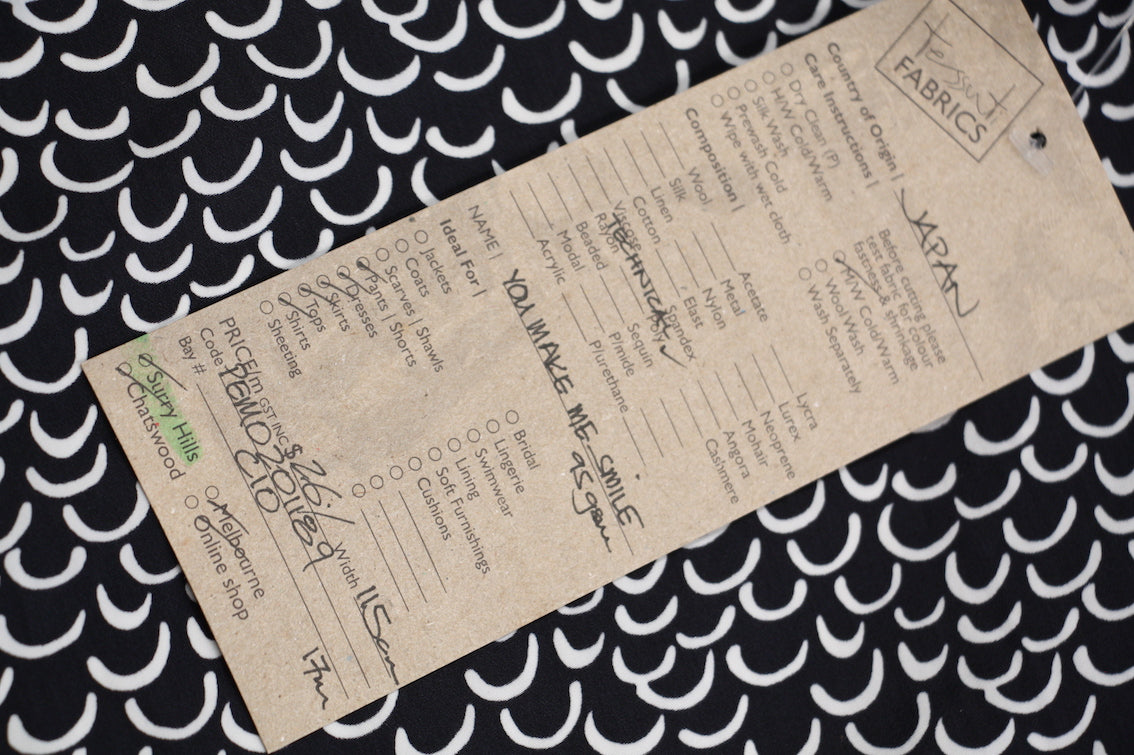 tessuti
FABRICS
Country of Origin | JAPAN
Care Instructions |
Before cutting please
test fabric for colour
fastness & shrinkage
Dry Clean (P)
H/W Cold/Warm
Silk Wash
Prewash Cold
Wipe with wet cloth
H/W Cold/Warm
Wool Wash
Wash Separately
Composition |
Wool
Silk
Linen
Cotton
Viscose
Rayon
Beaded
Modal
Acrylic
TECHNICAL
Acetate
Metal
Nylon
Elast
Spandex
Poly
Sequin
P/mide
P/urethane
Lycra
Lurex
Neoprene
Mohair
Angora
Cashmere
NAME | YOU MAKE ME SMILE
Ideal For |
Jackets
Coats
Scarves | Shawls
Pants | Shorts
Dresses
Skirts
Tops
Shirts
Sheeting
Bridal
Lingerie
Swimwear
Lining
Soft Furnishings
Cushions
PRICE/m GST INC $26/ Width 115cm
Code
Bay # C10
17m
Surry Hills
Chatswood
Melbourne
Online shop